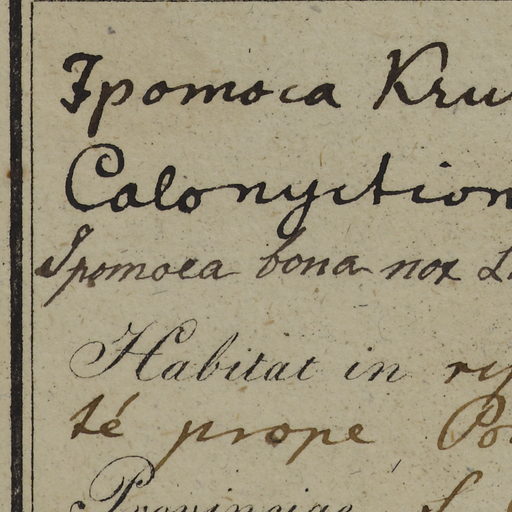 Ipomoea Kru
Calonyction
Ipomoea bona nox L
Habitat in
té prope Po
Provinciae